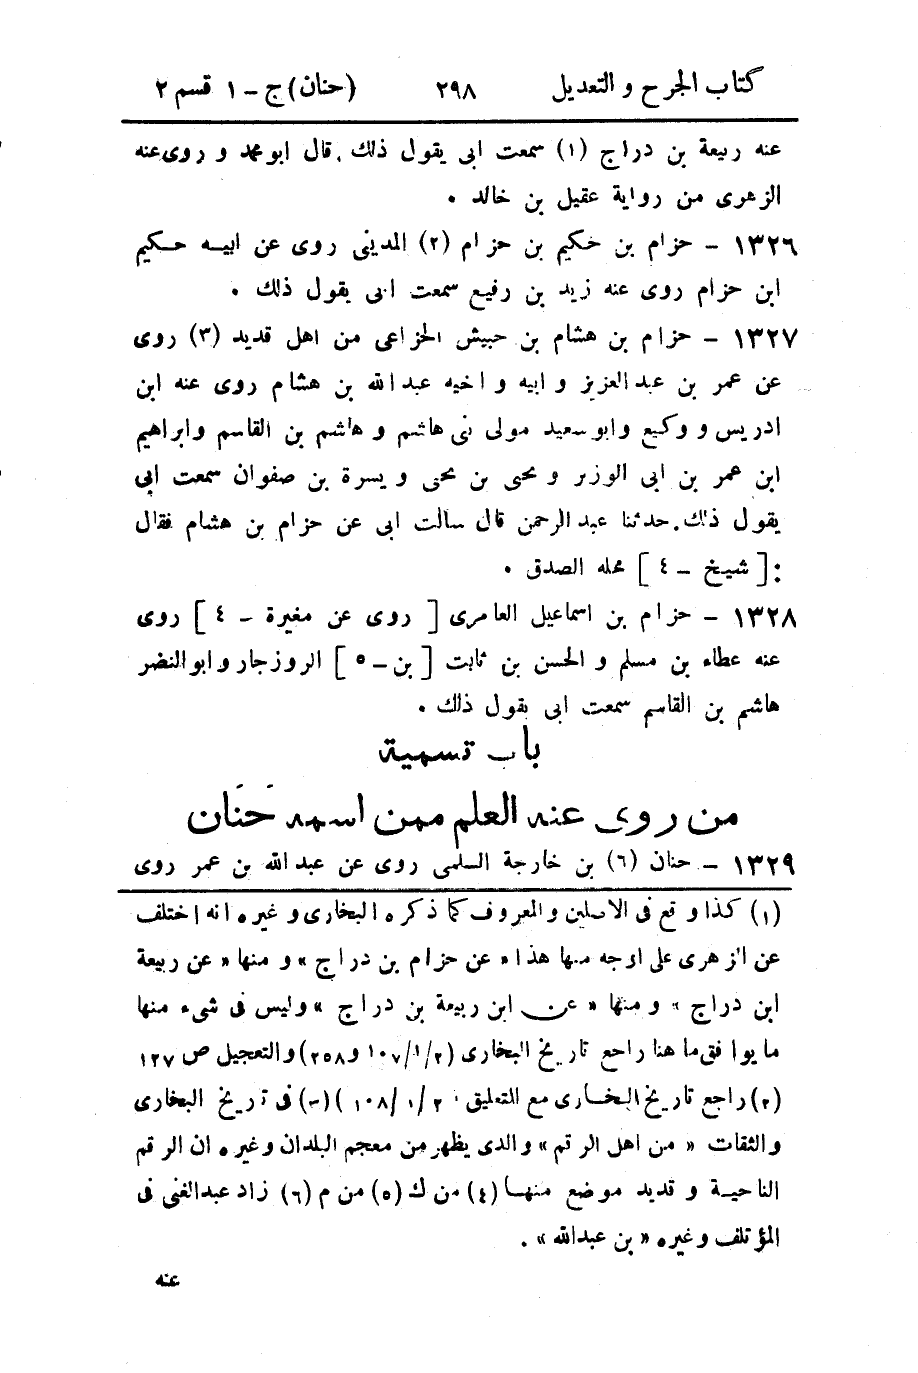 كتاب الجرح و التعديل ٢٩٨ (حنان) ج - ١ قسم ٢
عنه ربيعة بن دراج (١) سمعت ابى يقول ذلك . قال ابو محمد و روى عنه
الزهرى من رواية عقيل بن خالد .
١٣٢٦ - حزام بن حكيم بن حزام (٢) المدينى روى عن ابيه حكيم
ابن حزام روى عنه زيد بن رفيع سمعت ابى يقول ذلك .
١٣٢٧ - حزام بن هشام بن حبيش الخزاعى من اهل قديد (٣) روى
عن عمر بن عبد العزيز و ابيه و اخيه عبد الله بن هشام روى عنه ابن
ادريس و وكيع وابو سعيد مولى بنى هاشم و هاشم بن القاسم وابراهيم
ابن عمر بن ابى الوزير و يحيى بن يحيى و يسرة بن صفوان سمعت ابى
يقول ذلك . حدثنا عبد الرحمن قال سألت ابى عن حزام بن هشام فقال
: [ شيخ - ٤ ] محله الصدق .
١٣٢٨ - حزام بن اسماعيل العامرى [ روى عن مغيرة - ٤ ] روى
عنه عطاء بن مسلم و الحسن بن ثابت [ بن - ٥ ] الروزجار و ابو النضر
هاشم بن القاسم سمعت ابى يقول ذلك .
باب تسمية
من روى عنه العلم ممن اسمه حَنَان
١٣٢٩ - حنان (٦) بن خارجة السلمى روى عن عبد الله بن عمر روى
(١) كذا وقع فى الاصلين والمعروف كما ذكره البخارى و غيره انه اختلف
عن الزهرى على اوجه منها هذا « عن حزام بن دراج » و منها « عن ربيعة
ابن دراج » ومنها « عن ابن ربيعة بن دراج » وليس فى شىء منها
ما يوافق ما هنا راجع تاريخ البخارى (٢/١/١٠٧ و ٢٥٨) والتعجيل ص ١٢٧
(٢) راجع تاريخ البخارى مع التعليق ٢/١/١٠٨ ) (٣) فى تاريخ البخارى
والثقات « من اهل الرقم » والذى يظهر من معجم البلدان وغيره ان الرقم
الناحية و قديد موضع منها (٤) من ك (٥) من م (٦) زاد عبدالغنى فى
المؤتلف وغيره « بن عبدالله » .
عنه